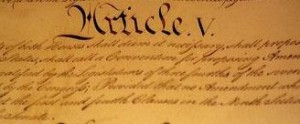 Article. V.
of both Houses shall deem it necessary, shall propose
States, shall call a Convention for proposing Amend
ratified by the Legislatures of three fourths of the seve
by the Congress; Provided that no Amendment which
the first and fourth Clauses in the Ninth Section